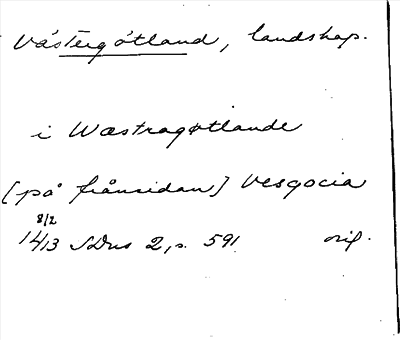 Västergötland, landskap.
i Wæstragøtlande
[på frånsidan] Vesgocia
8/2
1413 SDns 2, s. 591. orig.